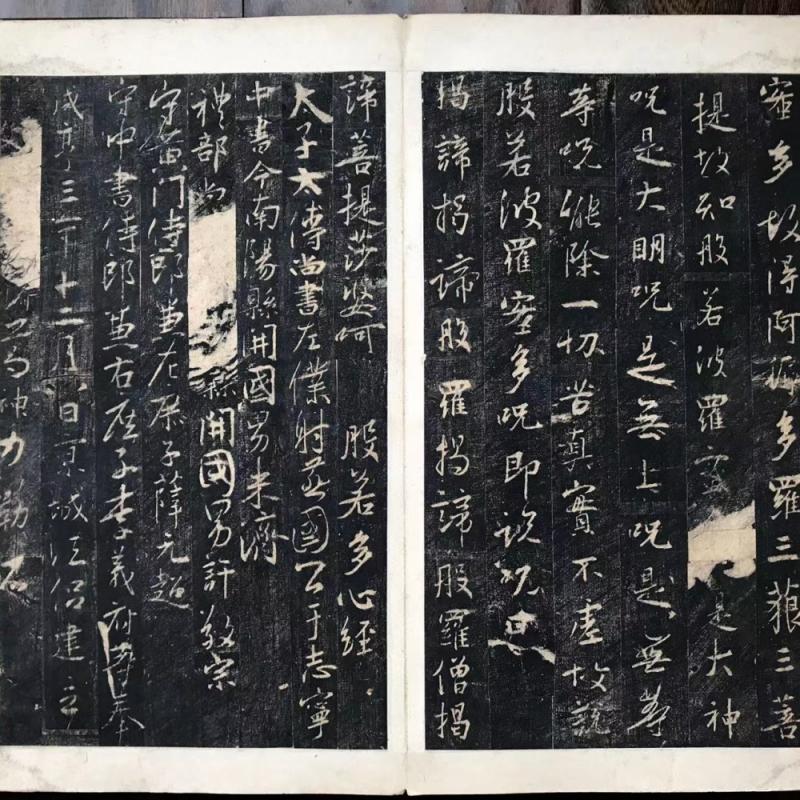 蜜多故得阿耨多羅三藐三菩
提故知般若波羅蜜是大神
呪是大明呪是無上呪是無等
等呪能除一切苦真實不虛故說
般若波羅蜜多呪即說呪曰
揭諦揭諦般羅揭諦般羅僧揭
諦菩提莎婆呵　般若多心經
太子太傅尚書左僕射燕國公于志寧
中書令南陽縣開國男來濟
禮部尚縣開國男許敬宗
守黃門侍郎兼左庶子薛元超
守中書侍郎兼右庶子李義府等奉
咸亨三年十二月日京城法侶建立
神力勒石